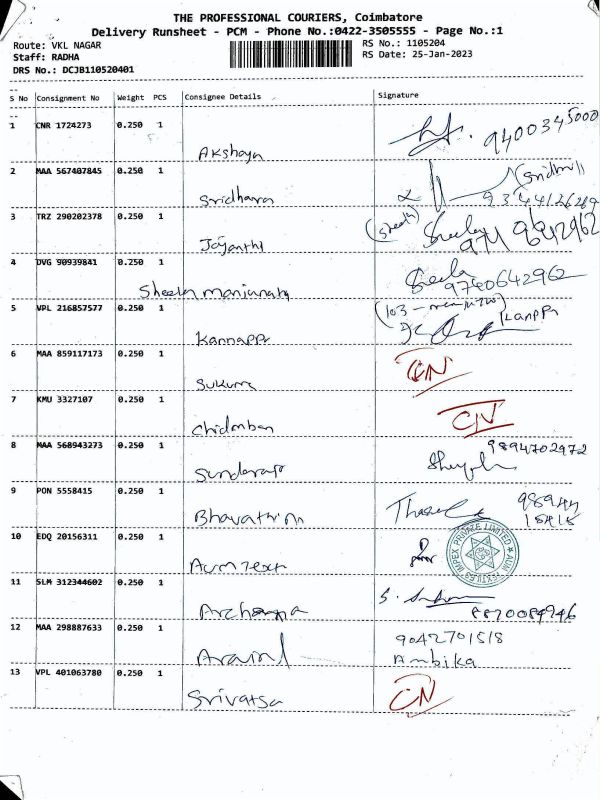 THE PROFESSIONAL COURIERS, Coimbatore
Delivery Runsheet - PCM - Phone No.:0422-3505555 - Page No.:1
Route: VKL NAGAR
RS No.: 1105204
Staff: RADHA
RS Date: 25-Jan-2023
DRS No.: DCJB110520401
S No Consignment No Weight PCS Consignee Details Signature
1 CNR 1724273 0.250 1 Akshaya 9400345000
2 MAA 567407845 0.250 1 Sridharan 9344126289
3 TRZ 290202378 0.250 1 Jayanthi Sheela
4 DVG 90939841 0.250 1 Sheela manjunath Sheela 9740642962
5 VPL 216857577 0.250 1 Kannappa
6 MAA 859117173 0.250 1 CN
7 KMU 3327107 0.250 1 Chidmban CN
8 MAA 568943273 0.250 1 9894702972
9 PON 5558415 0.250 1
10 EDQ 20156311 0.250 1 Aum Text
11 SLM 312344602 0.250 1 Archana
12 MAA 298887633 0.250 1 9042701518
Ambika
13 VPL 401063780 0.250 1 Srivatsa CN